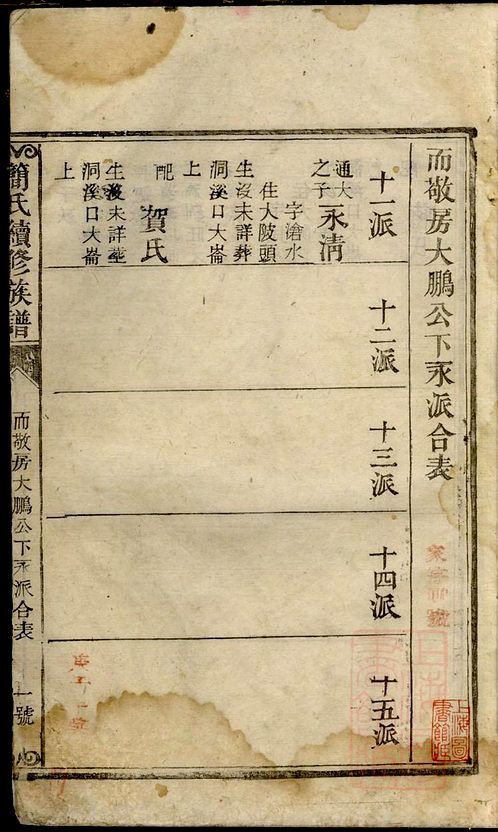 而敬房大鵬公下永派合表
十一派
通大
之子
永清
字滄水
住大陂頭
生沒未詳葬
洞溪口大崙
上
配
賀氏
生沒未詳葬
洞溪口大崙
上
十二派
十三派
十四派
十五派
簡氏續修族譜
而敬房大鵬公下永派合表
一號
上海圖
書館藏